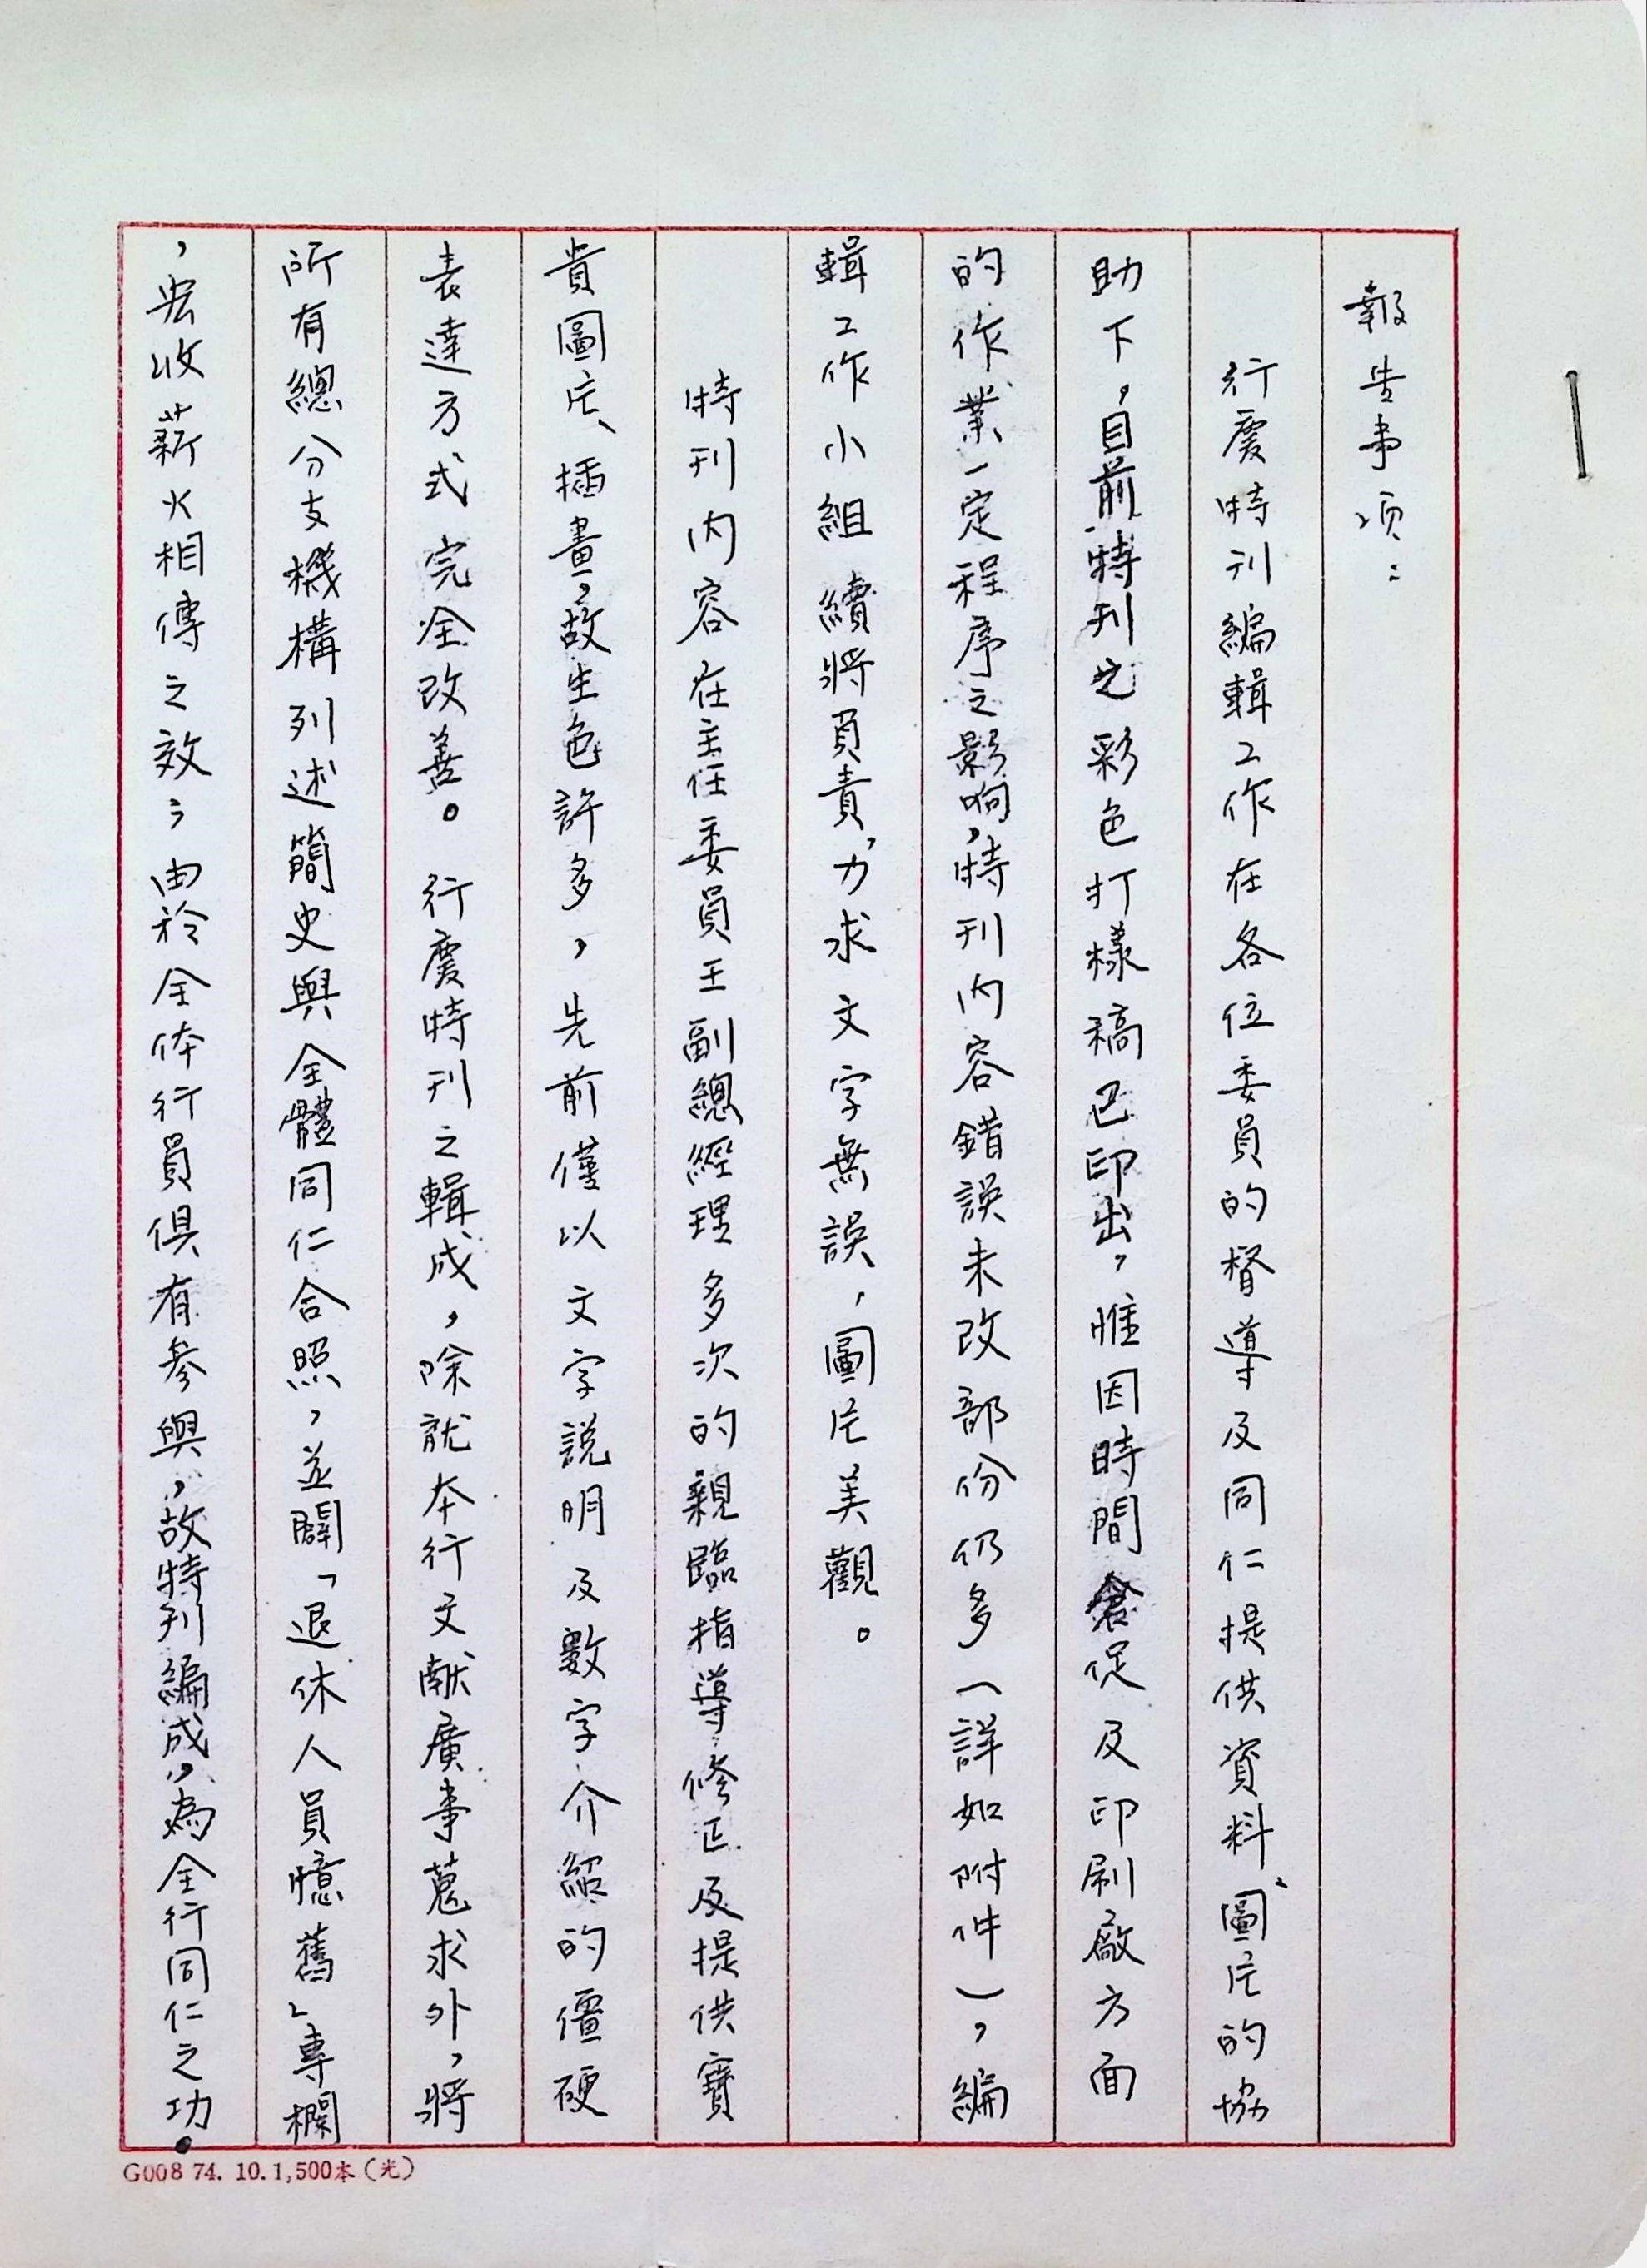 報告事項：
行慶特刊編輯工作在各位委員的督導及同仁提供資料、圖片的協
助下，目前特刊之彩色打樣稿已印出，惟因時間倉促及印刷廠方面
的作業一定程序之影响，特刊內容錯誤未改部份仍多（詳如附件），編
輯工作小組續將負責，力求文字無誤，圖片美觀。
特刊内容在主任委員王副總經理多次的親臨指導，修正及提供寶
貴圖片、插畫，故生色許多，先前僅以文字說明及數字介紹的僵硬
表達方式完全改善。行慶特刊之輯成，除就本行文献廣事蒐求外，將
所有總分支機構列述簡史與全體同仁合照，並闢「退休人員憶舊」專欄
，宏收薪火相傳之效；由於全体行員俱有參與，故特刊編成，為全行同仁之功。
G008 74. 10. 1,500本（光）